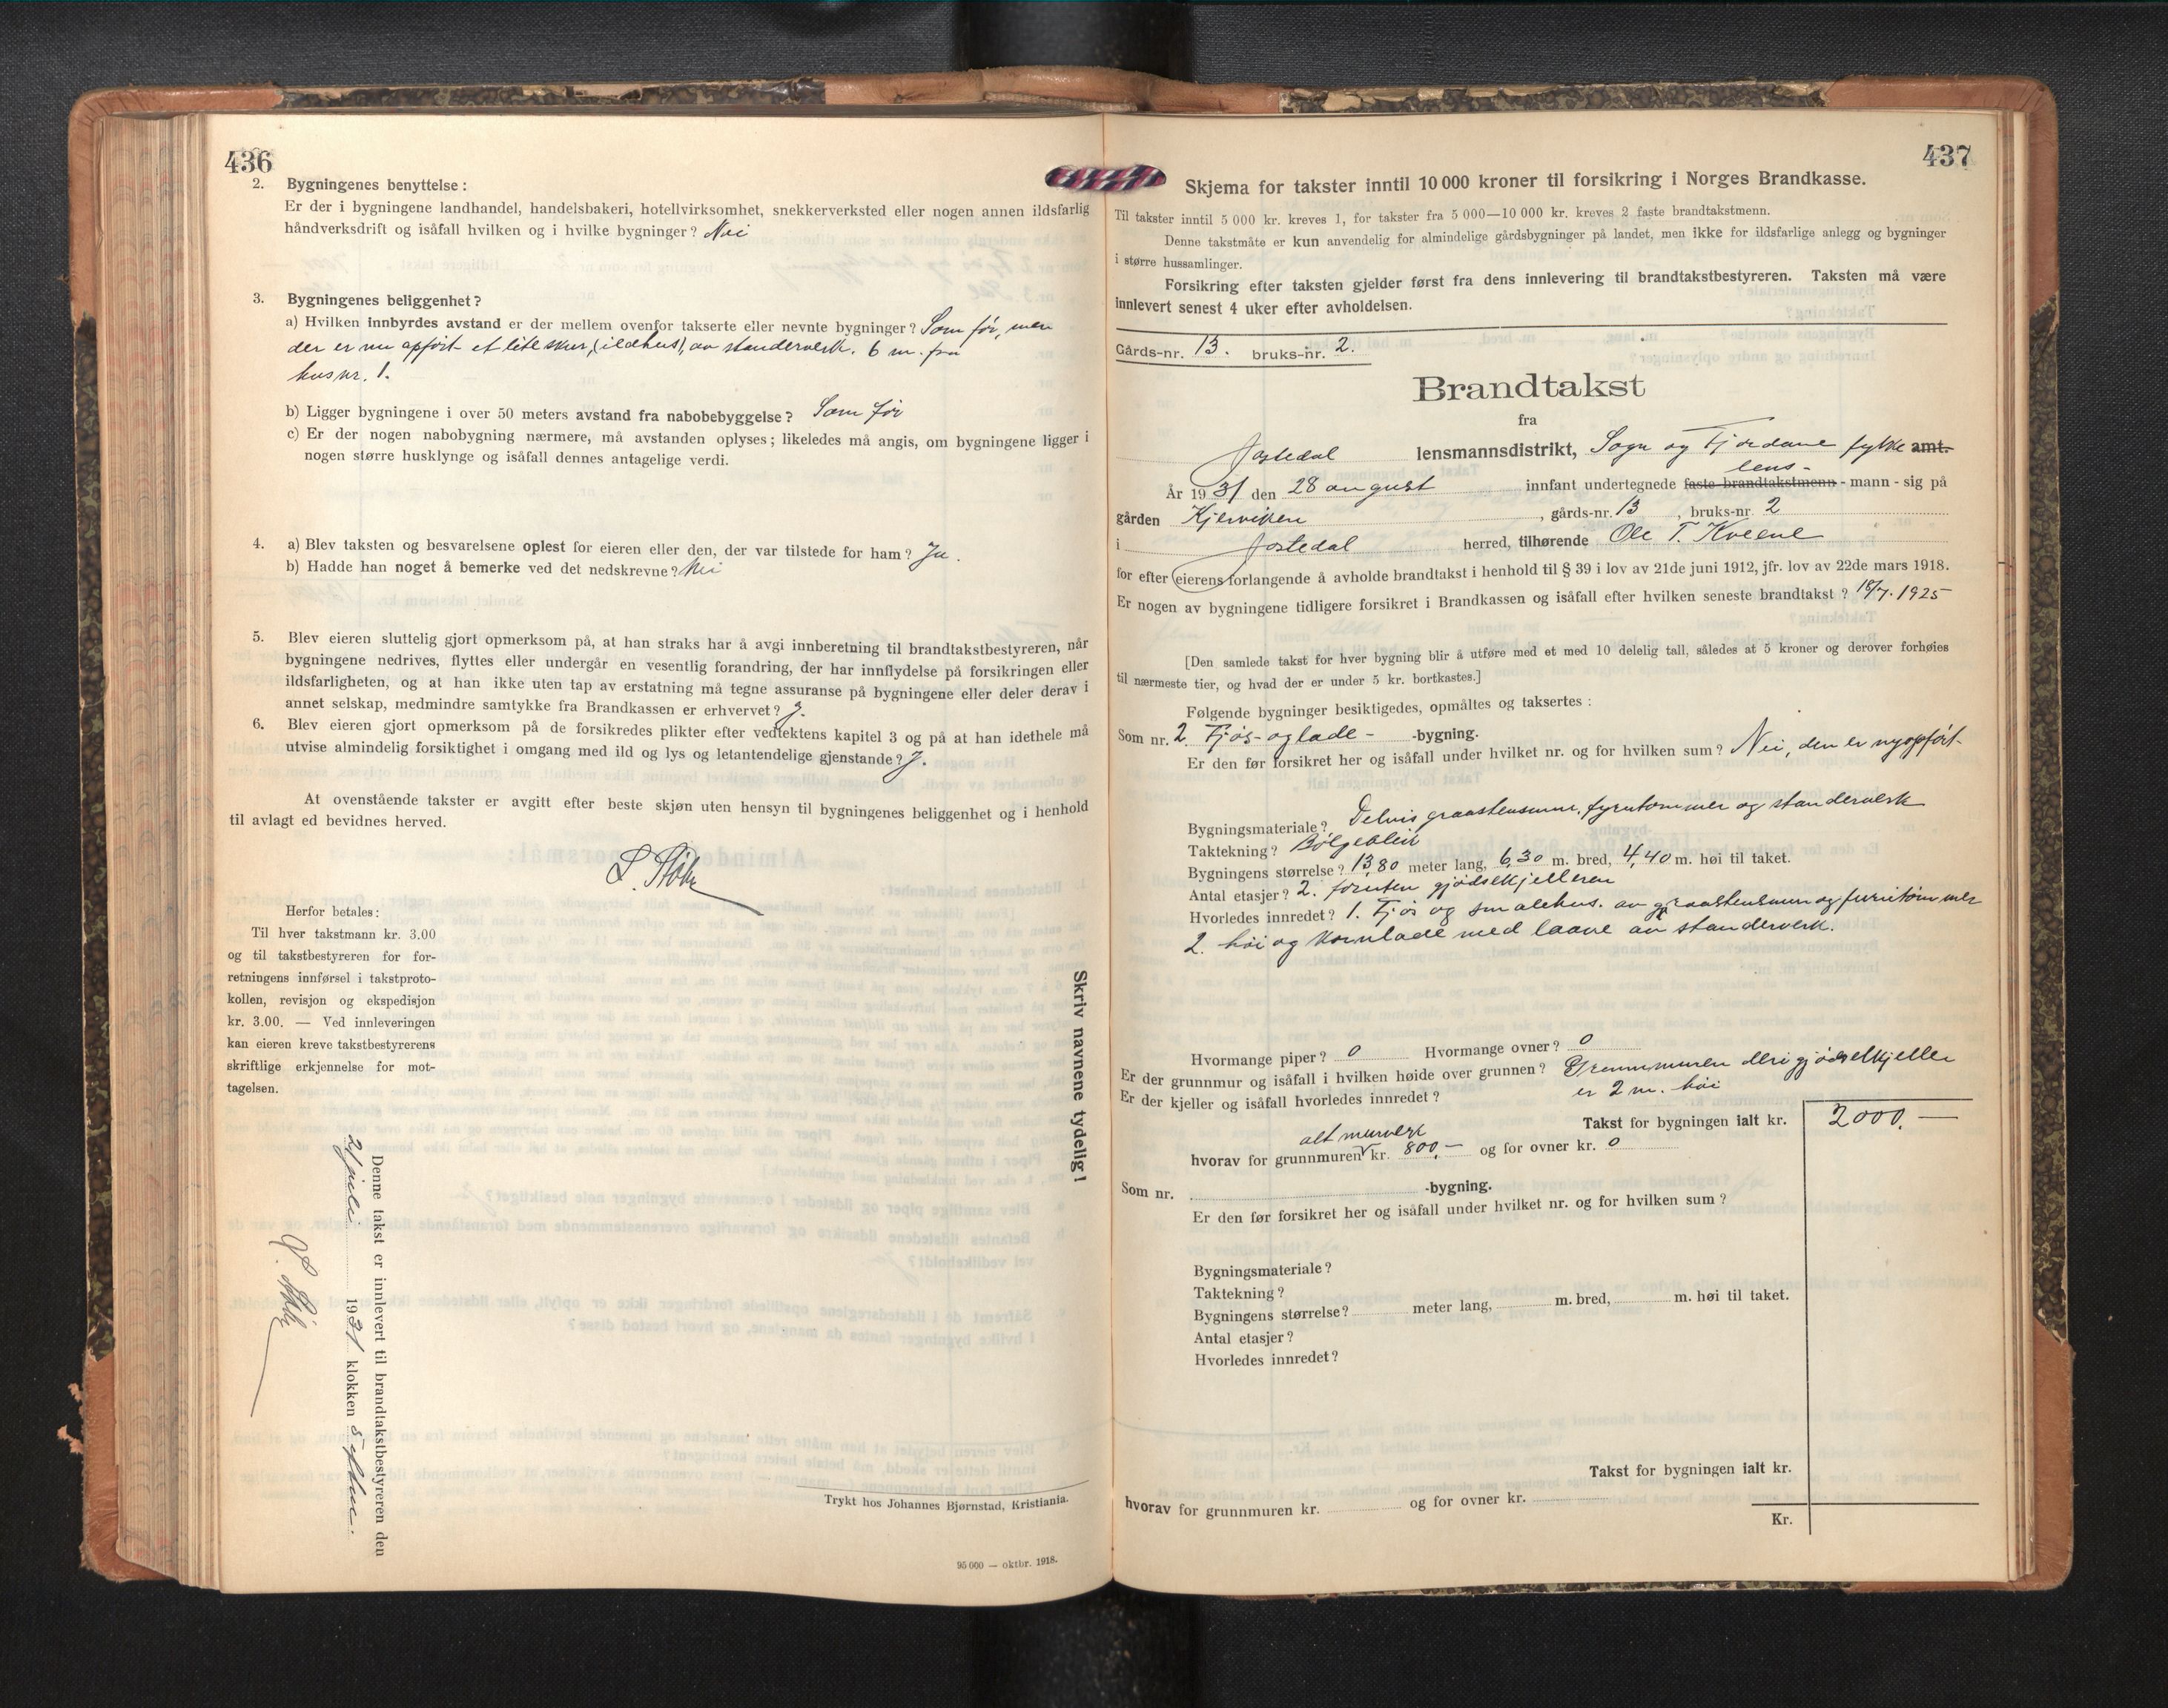 436
2. Bygningenes benyttelse:
Er der i bygningene landhandel, handelsbakeri, hotellvirksomhet, snekkerverksted eller nogen annen ildsfarlig
håndverksdrift og isåfall hvilken og i hvilke bygninger? Nei
3. Bygningenes beliggenhet?
a) Hvilken innbyrdes avstand er der mellem ovenfor takserte eller nevnte bygninger? Som før, men
der er nu opført et lite skur, (ildhus), av standerverk. 6 m. fra
hus nr. 1.
b) Ligger bygningene i over 50 meters avstand fra nabobebyggelse? Som før
c) Er der nogen nabobygning nærmere, må avstanden oplyses; likeledes må angis, om bygningene ligger i
nogen større husklynge og isåfall dennes antagelige verdi.
4. a) Blev taksten og besvarelsene oplest for eieren eller den, der var tilstede for ham? Ja.
b) Hadde han noget å bemerke ved det nedskrevne? Nei
5. Blev eieren sluttelig gjort opmerksom på, at han straks har å avgi innberetning til brandtakstbestyreren, når
bygningene nedrives, flyttes eller undergår en vesentlig forandring, der har innflydelse på forsikringen eller
ildsfarligheten, og at han ikke uten tap av erstatning må tegne assuranse på bygningene eller deler derav i
annet selskap, medmindre samtykke fra Brandkassen er erhvervet? J.
6. Blev eieren gjort opmerksom på de forsikredes plikter efter vedtektens kapitel 3 og på at han idethele må
utvise almindelig forsiktighet i omgang med ild og lys og letantendelige gjenstande? J.
At ovenstående takster er avgitt efter beste skjøn uten hensyn til bygningenes beliggenhet og i henhold
til avlagt ed bevidnes herved.
Herfor betales:
Til hver takstmann kr. 3.00
og til takstbestyreren for for-
retningens innførsel i takstproto-
kollen, revisjon og ekspedisjon
kr. 3.00. — Ved innleveringen
kan eieren kreve takstbestyrerens
skriftlige erkjennelse for mot-
tagelsen.
Skriv navnene tydelig!
Denne takst er innlevert til brandtakstbestyreren den
2/juli 1931 klokken 5 eftm.
Trykt hos Johannes Bjørnstad, Kristiania.
95 000 — oktbr. 1918.
437
Skjema for takster inntil 10 000 kroner til forsikring i Norges Brandkasse.
Til takster inntil 5 000 kr. kreves 1, for takster fra 5 000—10 000 kr. kreves 2 faste brandtakstmenn.
Denne takstmåte er kun anvendelig for almindelige gårdsbygninger på landet, men ikke for ildsfarlige anlegg og bygninger
i større hussamlinger.
Forsikring efter taksten gjelder først fra dens innlevering til brandtakstbestyreren. Taksten må være
innlevert senest 4 uker efter avholdelsen.
Gårds-nr. 13. bruks-nr. 2.
Brandtakst
fra
Jostedal lensmannsdistrikt, Sogn og Fjordane fylke amt.
lens-
År 1931 den 28 august innfant undertegnede faste brandtakstmenn - mann - sig på
gården Kjerviken, gårds-nr. 13, bruks-nr. 2
i Jostedal herred, tilhørende Ole T. Kveene
for efter eierens forlangende å avholde brandtakst i henhold til § 39 i lov av 21de juni 1912, jfr. lov av 22de mars 1918.
Er nogen av bygningene tidligere forsikret i Brandkassen og isåfall efter hvilken seneste brandtakst? 18/7. 1925
[Den samlede takst for hver bygning blir å utføre med et med 10 delelig tall, således at 5 kroner og derover forhøies
til nærmeste tier, og hvad der er under 5 kr. bortkastes.]
Følgende bygninger besiktigedes, opmåltes og taksertes:
Som nr. 2. Fjøs- og lade- -bygning.
Er den før forsikret her og isåfall under hvilket nr. og for hvilken sum? Nei, den er nyopført
Bygningsmateriale? Delvis graastensmur, furutømmer og standerverk
Taktekning? Bølgeblikk
Bygningens størrelse? 13,80 meter lang, 6,30 m. bred, 4,40 m. høi til taket.
Antal etasjer? 2. foruten gjødselkjelleren
Hvorledes innredet? 1. Fjøs og smalehus. av graastensmur og furutømmer
2. høi og kornlade med laave av standerverk.
Hvormange piper? 0 Hvormange ovner? 0
Er der grunnmur og isåfall i hvilken høide over grunnen? Grunnmuren deri gjødselkjeller
Er der kjeller og isåfall hvorledes innredet? er 2 m. høi
Takst for bygningen ialt kr. 2000.—
alt murverk
hvorav for grunnmuren kr. 800,— og for ovner kr. 0
Som nr. -bygning.
Er den før forsikret her og isåfall under hvilket nr. og for hvilken sum?
Bygningsmateriale?
Taktekning?
Bygningens størrelse? meter lang, m. bred, m. høi til taket.
Antal etasjer?
Hvorledes innredet?
Takst for bygningen ialt kr.
hvorav for grunnmuren kr. og for ovner kr.
Kr.